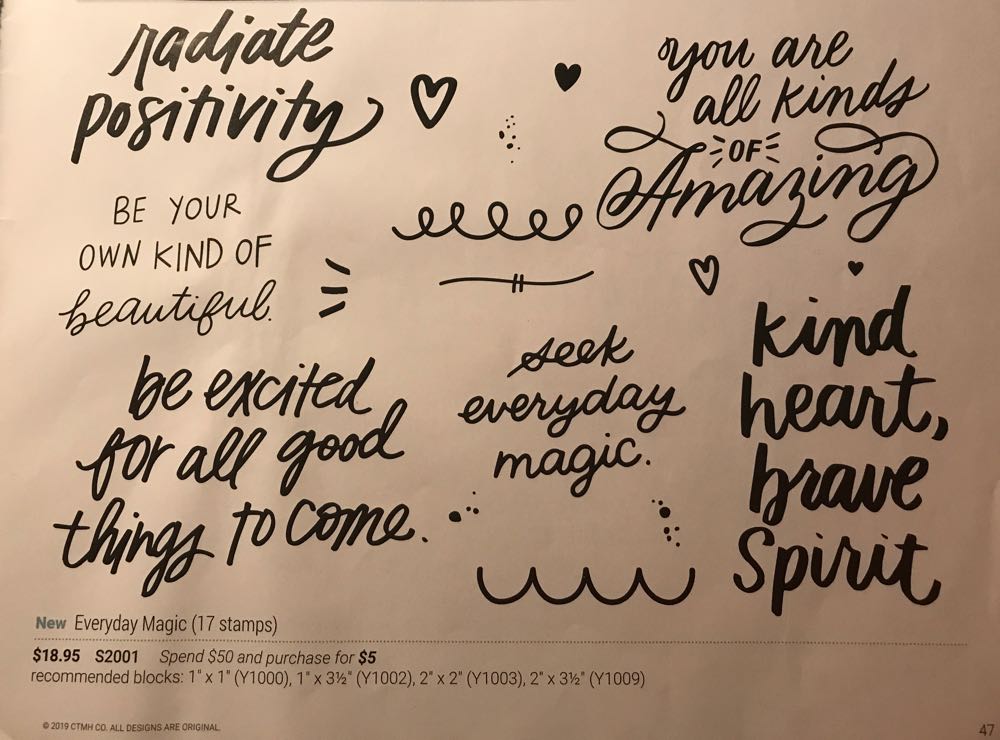 radiate
positivity
you are
all kinds
OF
Amazing
BE YOUR
OWN KIND OF
beautiful.
be excited
for all good
things to come.
seek
everyday
magic.
kind
heart,
brave
Spirit
New Everyday Magic (17 stamps)
$18.95 S2001 Spend $50 and purchase for $5
recommended blocks: 1" x 1" (Y1000), 1" x 3½" (Y1002), 2" x 2" (Y1003), 2" x 3½" (Y1009)
© 2019 CTMH CO. ALL DESIGNS ARE ORIGINAL.
47